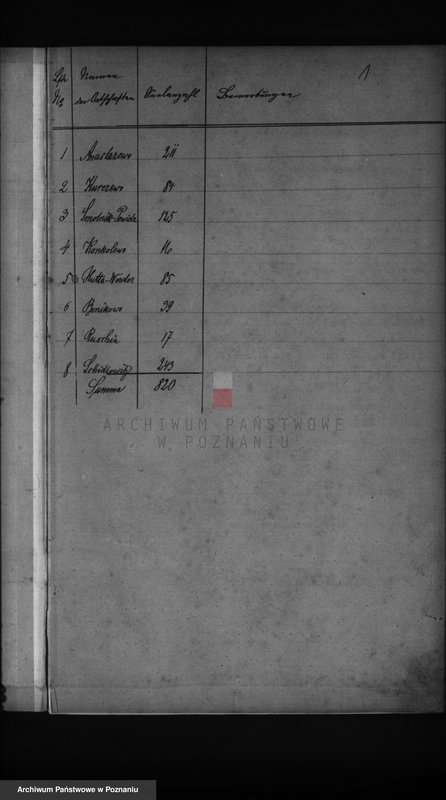 Lfd Namen
No der Ortschaften Seelenzahl Bemerkungen 1
1 Anastazewo 211
2 Kurczewo 84
3 Smolnik-Powidz 125
4 Konkolewo 16
5 Hutta-Wondol 85
6 Bonikowo 39
7 Ruschin 17
8 Schidlowitz 243
Summa 820
ARCHIWUM PAŃSTWOWE
W POZNANIU
Archiwum Państwowe w Poznaniu